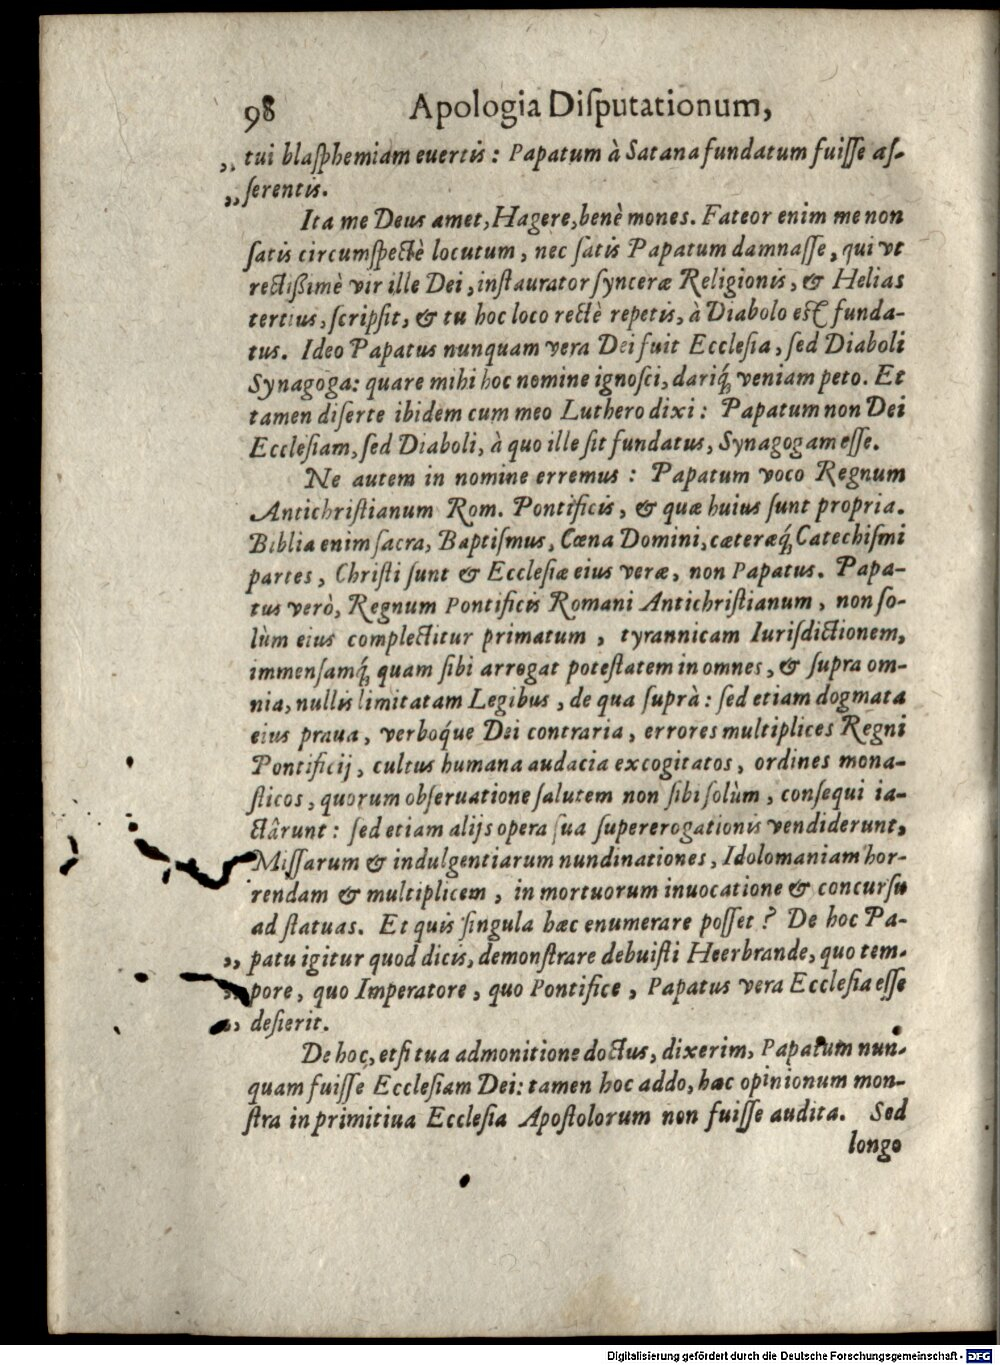 98 Apologia Diſputationum,
„ tui blaſphemiam euertis: Papatum à Satana fundatum fuiſſe aſ-
„ ſerentis.
Ita me Deus amet, Hagere, benè mones. Fateor enim me non
ſatis circumſpectè locutum, nec ſatis Papatum damnaſſe, qui vt
rectißimè vir ille Dei, inſtaurator ſynceræ Religionis, & Helias
tertius, ſcripſit, & tu hoc loco rectè repetis, à Diabolo eſt funda-
tus. Ideo Papatus nunquam vera Dei fuit Eccleſia, ſed Diaboli
Synagoga: quare mihi hoc nomine ignoſci, dariq́; veniam peto. Et
tamen diſerte ibidem cum meo Luthero dixi: Papatum non Dei
Eccleſiam, ſed Diaboli, à quo ille ſit fundatus, Synagogam eſſe.
Ne autem in nomine erremus: Papatum voco Regnum
Antichriſtianum Rom. Pontificis, & quæ huius ſunt propria.
Biblia enim ſacra, Baptiſmus, Cœna Domini, cæteræq́; Catechiſmi
partes, Chriſti ſunt & Eccleſiæ eius veræ, non Papatus. Papa-
tus verò, Regnum Pontificis Romani Antichriſtianum, non ſo-
lùm eius complectitur primatum, tyrannicam Iuriſdictionem,
immenſamq́; quam ſibi arrogat poteſtatem in omnes, & ſupra om-
nia, nullis limitatam Legibus, de qua ſuprà: ſed etiam dogmata
eius praua, verboq́ue Dei contraria, errores multiplices Regni
Pontificij, cultus humana audacia excogitatos, ordines mona-
ſticos, quorum obſeruatione ſalutem non ſibi ſolùm, conſequi ia-
ctârunt: ſed etiam alijs opera ſua ſupererogationis vendiderunt,
Miſſarum & indulgentiarum nundinationes, Idolomaniam hor-
rendam & multiplicem, in mortuorum inuocatione & concurſu
ad ſtatuas. Et quis ſingula hæc enumerare poſſet? De hoc Pa-
„ patu igitur quod dicis, demonſtrare debuiſti Heerbrande, quo tem-
„ pore, quo Imperatore, quo Pontifice, Papatus vera Eccleſia eſſe
„ deſierit.
De hoc, etſi tua admonitione doctus, dixerim, Papatum nun-
quam fuiſſe Eccleſiam Dei: tamen hoc addo, hæc opinionum mon-
ſtra in primitiua Eccleſia Apoſtolorum non fuiſſe audita. Sed
longe
Digitalisierung gefördert durch die Deutsche Forschungsgemeinschaft - DFG